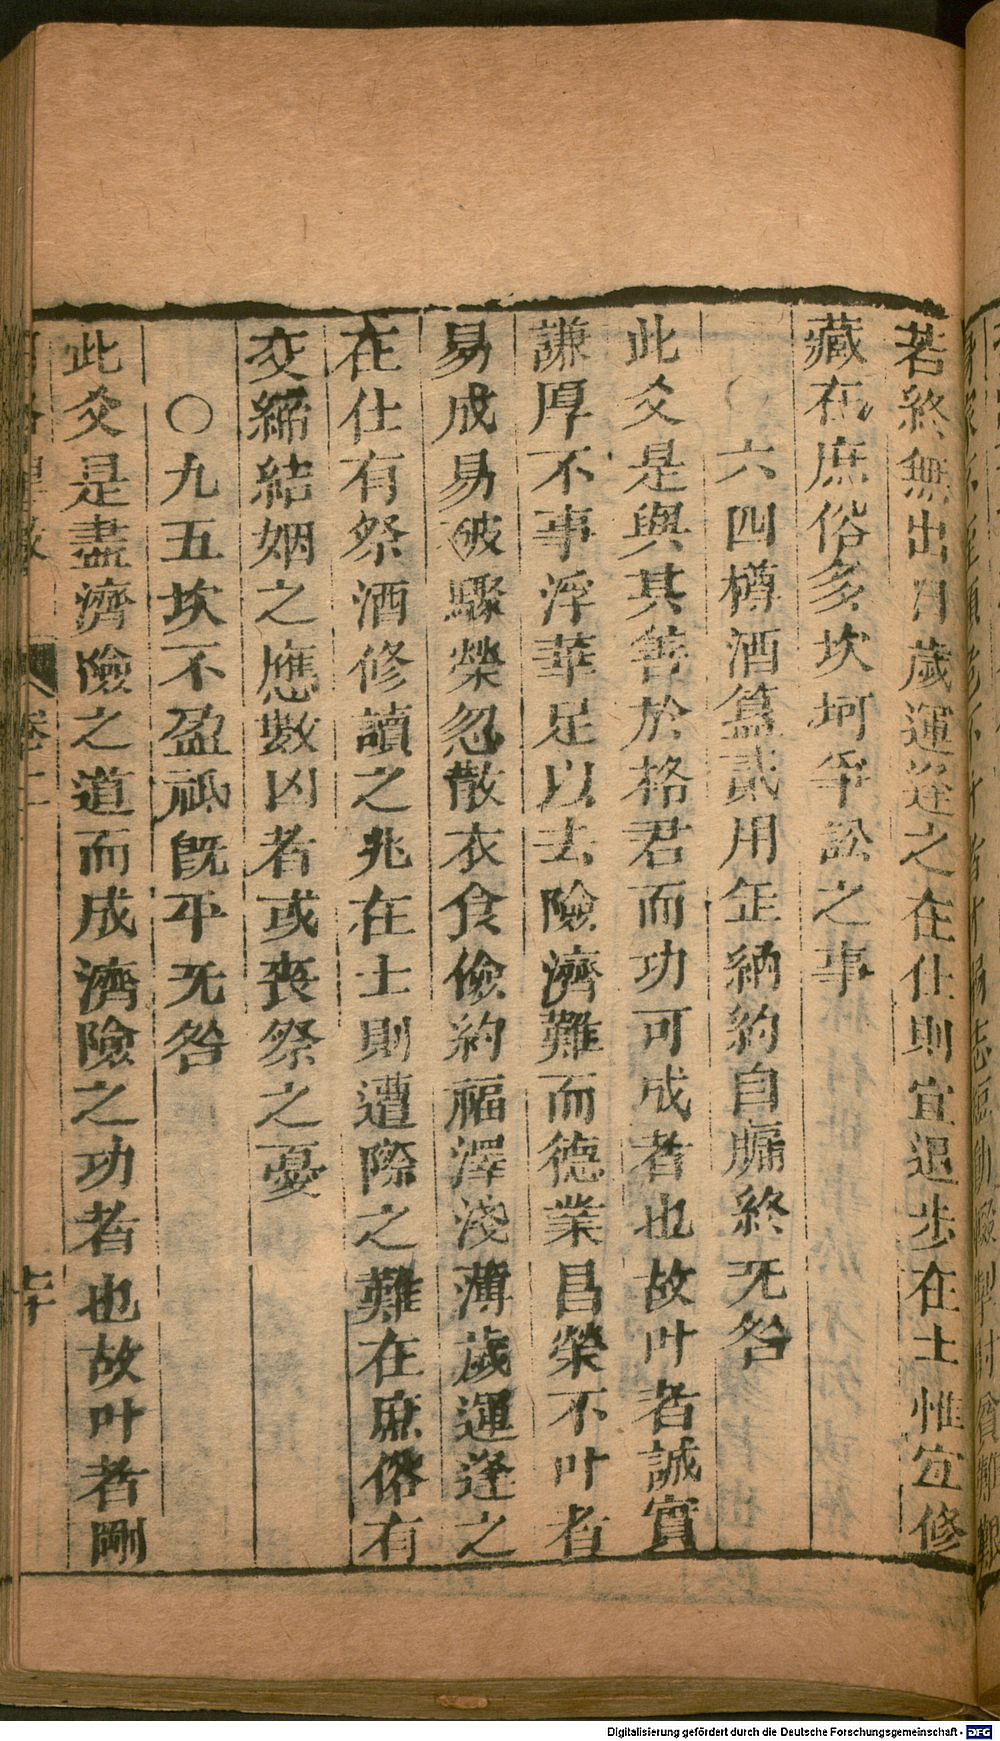 若終無出月歲運逢之在仕則宜退步在士惟宜修
藏在庶俗多坎坷爭訟之事
○六四樽酒簋貳用缶納約自牖終无咎
此爻是與其善於格君而功可成者也故叶者誠實
謙厚不事浮華足以去險濟難而德業昌榮不叶者
易成易破驟榮忽散衣食儉約福澤淺薄歲運逢之
在仕有祭酒修讀之兆在士則遭際之難在庶俗有
交締結姻之應數凶者或喪祭之憂
○九五坎不盈祗旣平无咎
此爻是盡濟險之道而成濟險之功者也故叶者剛
Digitalisierung gefördert durch die Deutsche Forschungsgemeinschaft - DFG